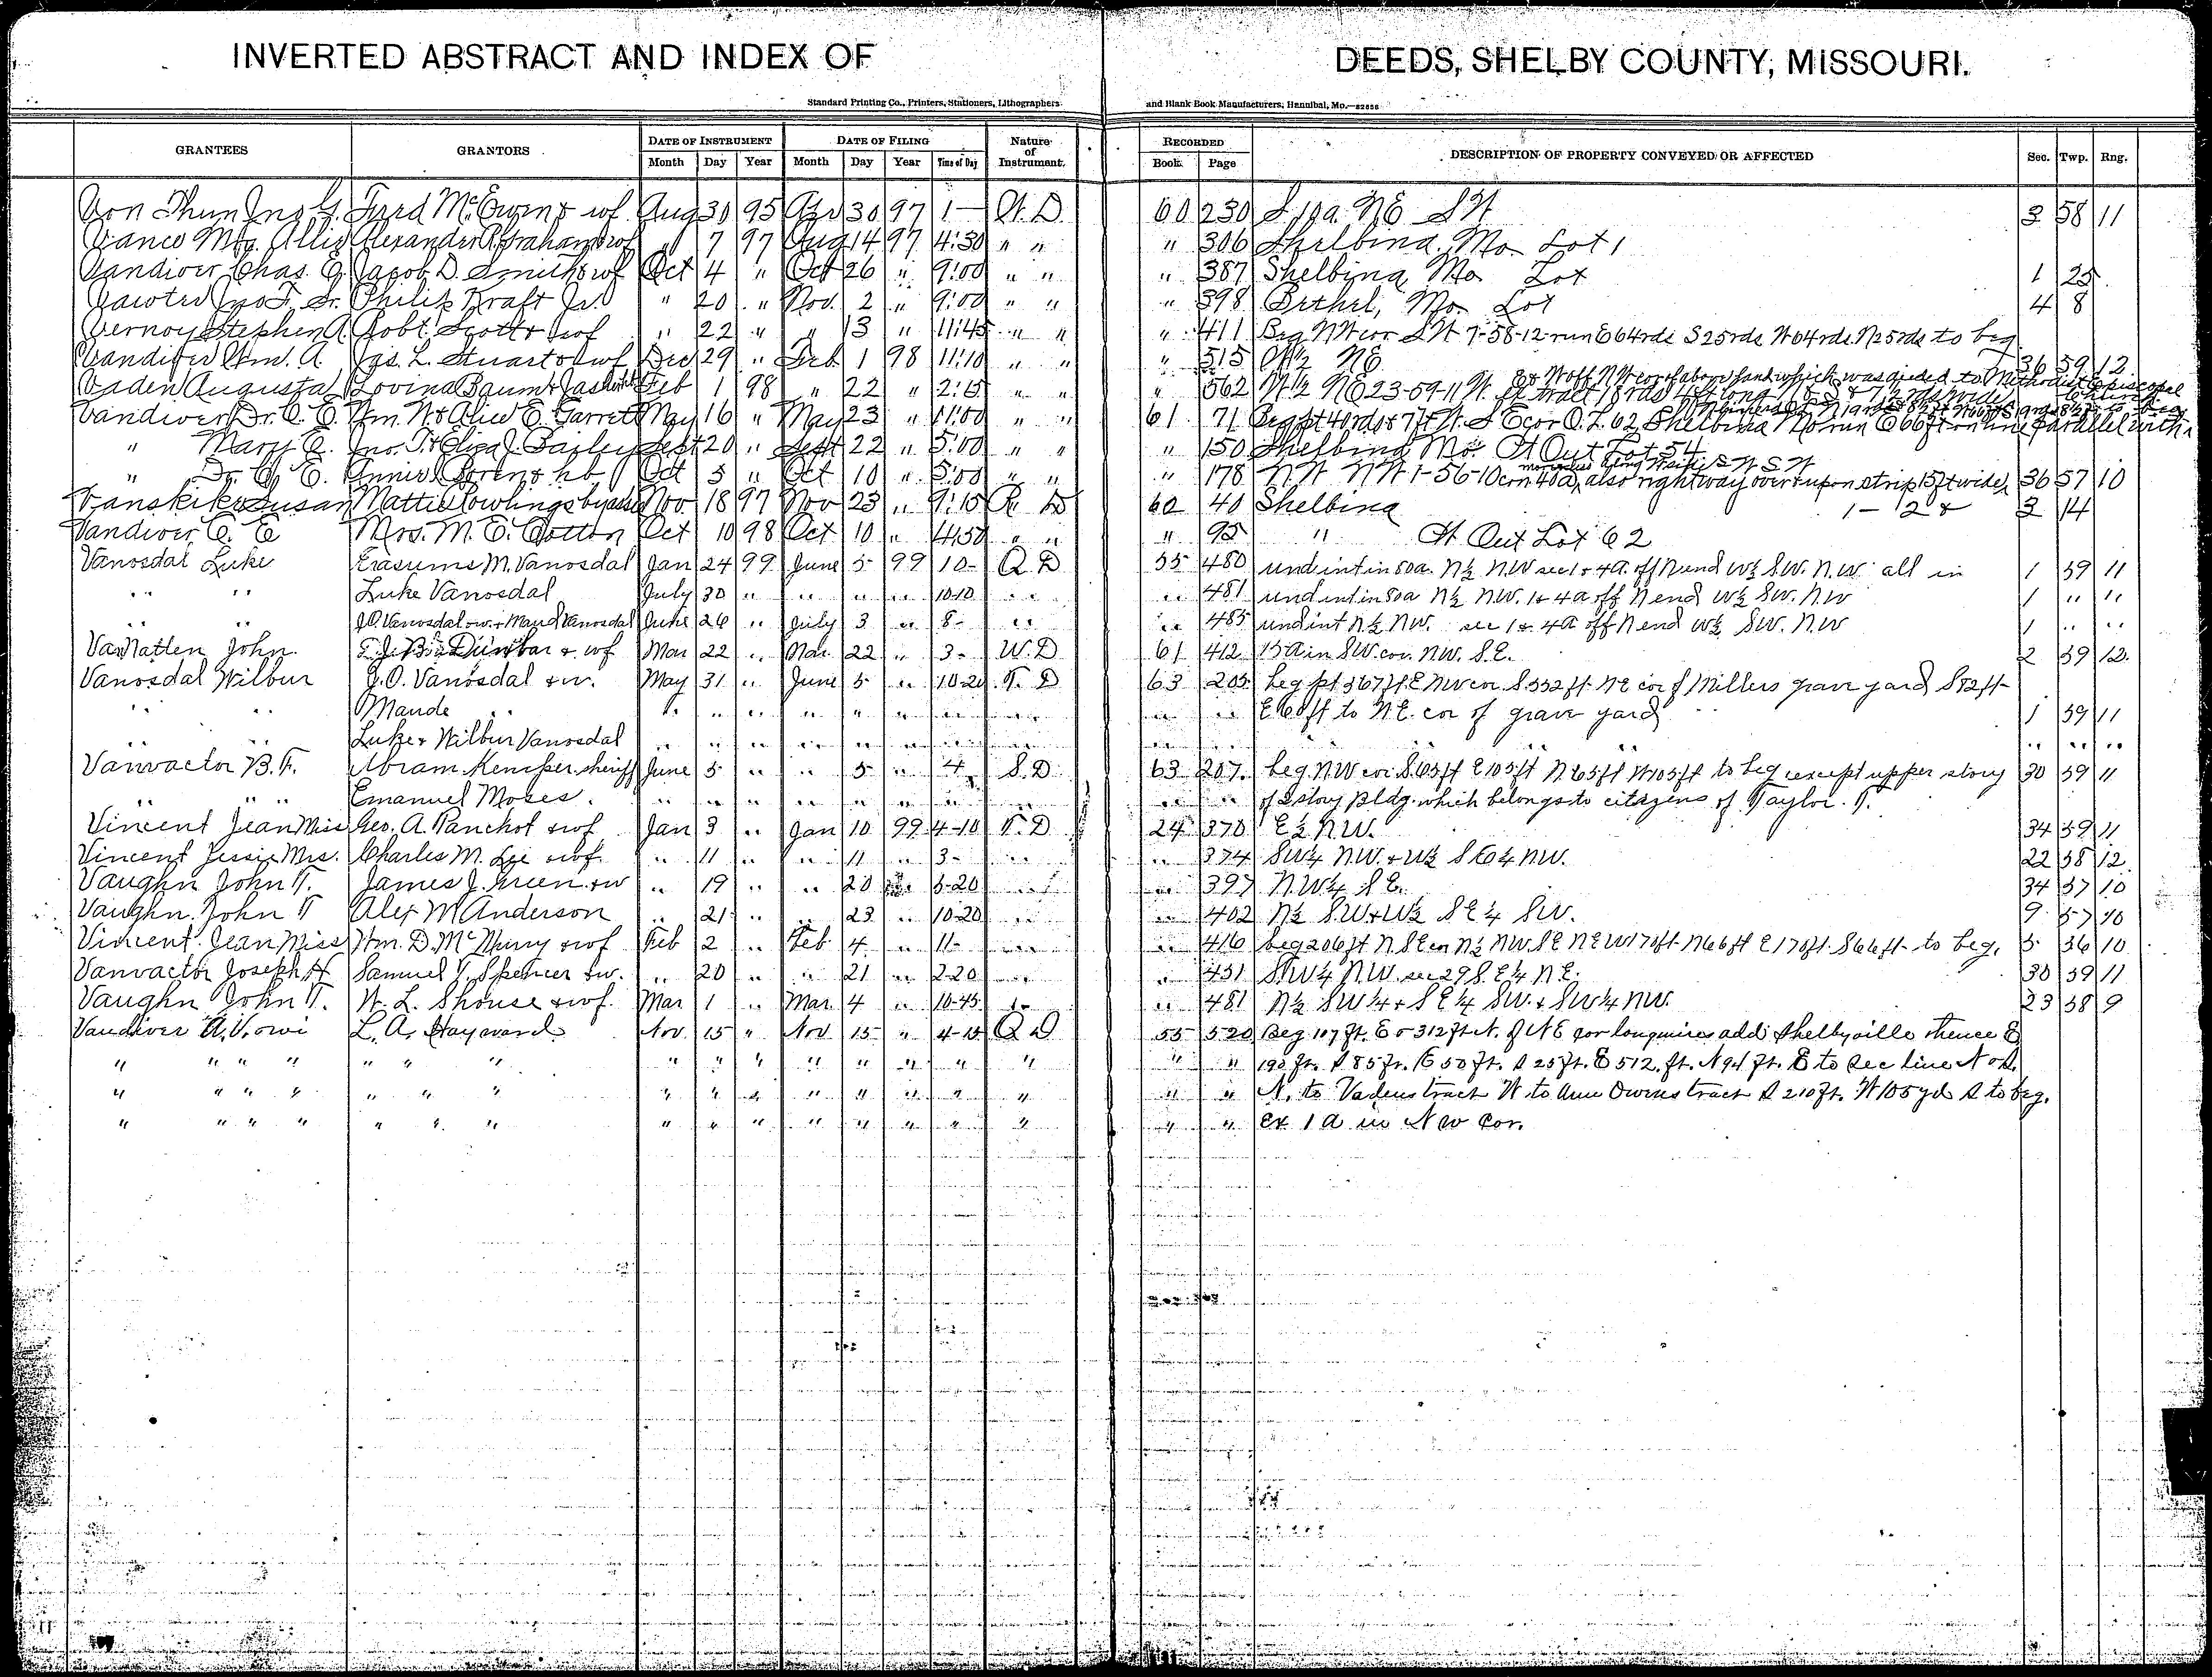 INVERTED ABSTRACT AND INDEX OF DEEDS, SHELBY COUNTY, MISSOURI.
Standard Printing Co., Printers, Stationers, Lithographers and Blank Book Manufacturers, Hannibal, Mo.
GRANTEES GRANTORS DATE OF INSTRUMENT DATE OF FILING Nature of Instrument. RECORDED DESCRIPTION OF PROPERTY CONVEYED OR AFFECTED Sec. Twp. Rng.
Month Day Year Month Day Year Time of Day Book Page
Von Thun Jno. G. Ford McEwen & wf Aug 30 95 30 97 1— W. D. 60 230 NE SW 3 58 11
Vance Mrs. Allie Alexander Abraham & wf " 7 97 Aug 14 97 4:30 " " " 306 Shelbina, Mo. Lot 1
Vandiver Chas. E. Jacob D. Smith & wf Oct 4 " Oct 26 " 9:00 " " " 387 Shelbina, Mo. Lot 1 25
Jno. F. Sr. Philip Kraft " 20 " Nov. 2 " 9:00 " " " 398 Bethel, Mo. Lot 4 8
Vernoy Stephen A. Robt. Scott & wf " 22 " " 13 " 11:45 " " " 411 Beg NW cor SW 7-58-12 run E 64 rds S 25 rds W 64 rds N 25 rds to beg
Vandiver Wm. A. Jas. L. Stuart & wf Dec 29 " Feb 1 98 11:10 " " " 515 W½ NE 36 59 12
Vaden Augusta Lovina Baum & Feb 1 98 " 22 " 2:15 " " " 562 W½ NE 23-59-11 which was deeded to Methodist Episcopal
Vandiver Dr. C. E. Wm. N. & Alice E. Garrett May 16 " May 23 " 11:00 " " 61 71 Beg pt 40 rds & 7 ft W. S E cor O. L. 62, Shelbina Mo run E 66 ft on line parallel with
" Mary E. Jno. T. & Eliza J. Bailey Sept 20 " Sept 22 " 5:00 " " " 150 Shelbina Mo. Pt Out Lot 54
" Dr. C. E. Annie & hb Oct 5 " Oct 10 " 5:00 " " " 178 NW NW 1-56-10 con 40 a, also right way over & upon strip 15 ft wide, 36 57 10
Vanskike Susan Mattie Cowlings Nov. 18 97 Nov 23 " 9:15 62 40 Shelbina 1-12 & 3 14
Vandiver C. E. Mrs. M. E. Cotton Oct 10 98 Oct 10 " 4:50 " " " 95 " Pt Out Lot 62
Vanosdal Luke Erasums M. Vanosdal Jan 24 99 June 5 99 10- Q. D 55 480 und int in 80a. N½ N.W sec 1 & 4 a. off N end W½ S.W. N.W. all in 1 59 11
" " Luke Vanosdal July 30 " " " " 10-10 " " " 481 und int in 80a N½ NW. 1 & 4 a off N end W½ SW. NW 1 " "
" " J.O. Vanosdal & w. & Maud Vanosdal June 26 " July 3 " 8- " " " 485 und int N½ NW. sec 1 & 4 a off N end W½ SW. NW 1 " "
VanNatten John. Dunbar & wf Mar 22 " Mar 22 " 3- W. D 61 412 15 a in SW. cor. NW. S.E. 2 59 12.
Vanosdal Wilbur J.O. Vanosdal & w. May 31 " June 5 " 10-20 T. D 63 205 beg pt 367 ft. E NW cor. S. 552 ft. NE cor of Millers grave yard S 82 ft
" " Maude " " " " " " " " " " " " E 60 ft to N.E. cor of grave yard 1 59 11
" " Luke & Wilbur Vanosdal " " " " " " " " " " " " " " " "
Vanvactor B. F. Abram Kemper sheriff June 5 " " 5 " 4 S. D. 63 207 beg NW cor S 65 ft E 105 ft N 65 ft W 105 ft to beg except upper story 30 59 11
" " " Emanuel Moses. " " " " " " " " " " " of 2 story bldg. which belongs to citizens of Taylor
Vincent Jean Miss Geo. A. Panchot & wf Jan 3 " Jan 10 99 4-10 T. D 24 370 E½ N.W. 34 59 11
Vincent Jessie Mrs. Charles M. Lie & wf. " 11 " " 11 " 3- " " " 374 SW¼ NW. & W½ SE¼ NW. 22 58 12
Vaughn John T. James J. Green & w " 19 " " 20 " 3-20 " " " 397 N.W¼ S.E. 34 57 10
Vaughn John T Alex M Anderson " 21 " " 23 " 10-20 " " " 402 N½ S.W & W½ SE¼ SW. 9 57 10
Vincent Jean Miss Wm. D. McMurry & wf Feb 2 " Feb 4 " 11- " " " 416 beg 206 ft N. SE cor N½ NW. SE NE W 170 ft N 66 ft E 170 ft S 66 ft to beg. 5 56 10
Vanvactor Joseph H Samuel V. Spencer & w. " 20 " " 21 " 2-20 " " " 431 SW¼ N.W. sec 29 S.E¼ N.E. 30 59 11
Vaughn John T. W. L. Shouse & wf. Mar 1 " Mar 4 " 10-45 " " " 481 N½ SW¼ & SE¼ SW. & SW¼ NW. 23 58 9
Vandiver A.V. & wi L. A. Hayward Nov. 15 " Nov. 15 " 4-15 Q D 55 520 Beg 107 ft. E & 312 ft N. of NE cor longmires add Shelbyville thence E
" " " " " " " " " " " " " " " " " 190 ft. S 85 ft. E 50 ft. S 25 ft. E 512. ft. N 94 ft. E to sec line
" " " " " " " " " " " " " " " " " N. to Vadens tract W to Ann Owens tract S 210 ft. W 105 yd S to beg.
" " " " " " " " " " " " " " " " " ex 1 a in N w cor.